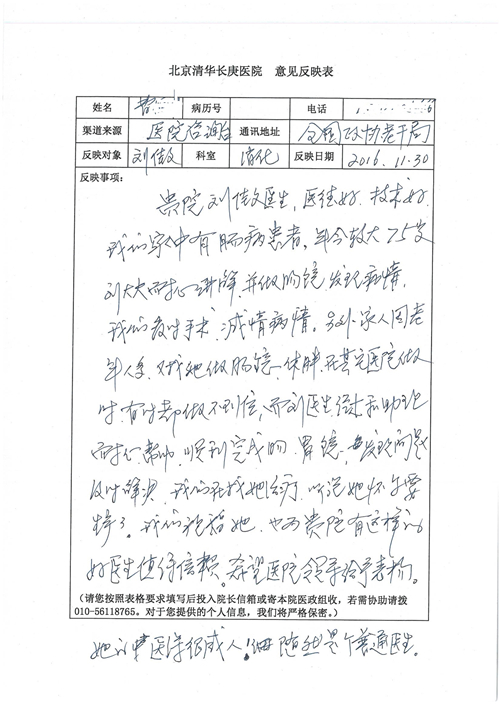 北京清华长庚医院 意见反映表
姓名 病历号 电话
渠道来源 医院咨询台 通讯地址 全国政协老干局
反映对象 刘佳文 科室 消化 反映日期 2016.11.30
反映事项：
贵院刘佳文医生，医德好，技术好，
我们家中有肠病患者，年令较大75岁
刘大夫耐心讲解，并做肠镜，发现病情，
我们及时手术，减情病情。另外，家人因老
年人多，对找她做肠镜，体胖，在其它医院做
时，有时都做不到位，而刘医生经过和助理
耐心帮助，顺利完成肠、胃镜，发现问题
及时解决，我们在找她治疗，听说她怀孕要
生了，我们祝福她，也为贵院有这样的
好医生值得信赖。希望医院领导给予表扬。
（请您按照表格要求填写后投入院长信箱或寄本院医政组收，若需协助请拨
010-56118765。对于您提供的个人信息，我们将严格保密。）
她以医学组成人 虽然是个普通医生。